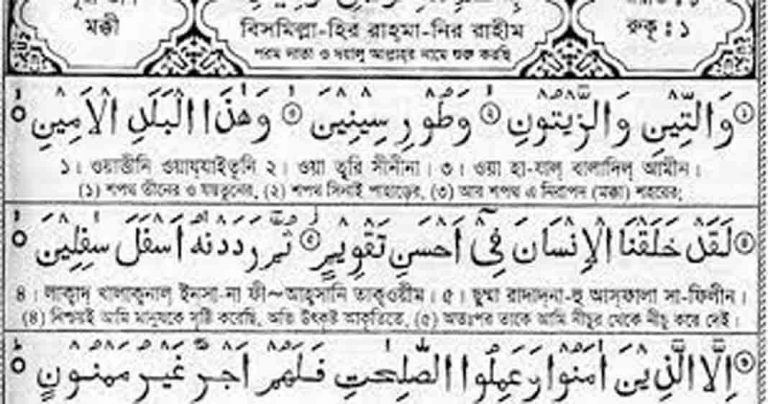 মক্কী
বিসমিল্লা-হির রাহ্‌মা-নির রাহীম
রুকূ : ১
পরম দাতা ও দয়ালু আল্লাহর নামে শুরু করছি
وَالتِّيْنِ وَالزَّيْتُوْنِ وَطُوْرِ سِيْنِيْنَ وَهٰذَا الْبَلَدِ الْاَمِيْنِ
১। ওয়াত্তীনি ওয়ায্‌যাইতূনি ২। ওয়া তূরি সীনীনা। ৩। ওয়া হা-যাল্ বালাদিল্ আমীন।
(১) শপথ তীনের ও যয়তুনের, (২) শপথ সিনাই পাহাড়ের, (৩) আর শপথ এ নিরাপদ (মক্কা) শহরের;
لَقَدْ خَلَقْنَا الْاِنْسَانَ فِىْٓ اَحْسَنِ تَقْوِيْمٍ ثُمَّ رَدَدْنٰهُ اَسْفَلَ سٰفِلِيْنَ
৪। লাক্বাদ্ খালাক্বনাল্ ইনসা-না ফী~আহ্‌সানি তাক্বওয়ীম। ৫। ছুম্মা রাদাদ্‌না-হু আস্‌ফালা সা-ফিলীন।
(৪) নিশ্চয়ই আমি মানুষকে সৃষ্টি করেছি, অতি উৎকৃষ্ট আকৃতিতে, (৫) অতঃপর তাকে আমি নীচুর থেকে নীচু করে দেই।
اِلَّا الَّذِيْنَ اٰمَنُوْا وَعَمِلُوا الصّٰلِحٰتِ فَلَهُمْ اَجْرٌ غَيْرُ مَمْنُوْنٍ